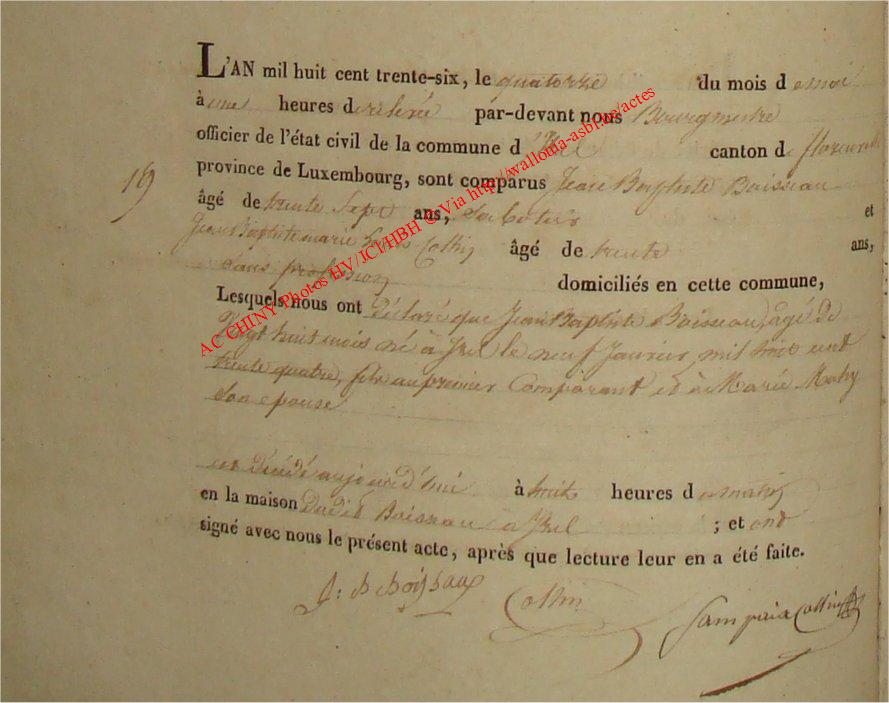 L'AN mil huit cent trente-six, le quatorze du mois d e mai
à une heures d relevée par-devant nous Bourgmestre
officier de l'état civil de la commune d' Izel canton de florenville
19 province de Luxembourg, sont comparus Jean Baptiste Boisseau
âgé de trente Sept ans, Sabotier et
Jean Baptiste marie Collin âgé de trente ans,
Sans profession domiciliés en cette commune,
Lesquels nous ont déclaré que Jean Baptiste Boisseau, agé de
Vingt huit mois né à Izel le neuf Janvier mil huit cent
trente quatre, fils au premier Comparant et à Marie Mahy
Son épouse
est décédé aujourd'hui à huit heures d e matin
en la maison dudit Boisseau a Izel ; et ont
signé avec nous le présent acte, après que lecture leur en a été faite.
J: b boisseau Collin Collin
AC CHINY Photos HV/JCI/HBH © Via http://wallonia-asbl.be/actes